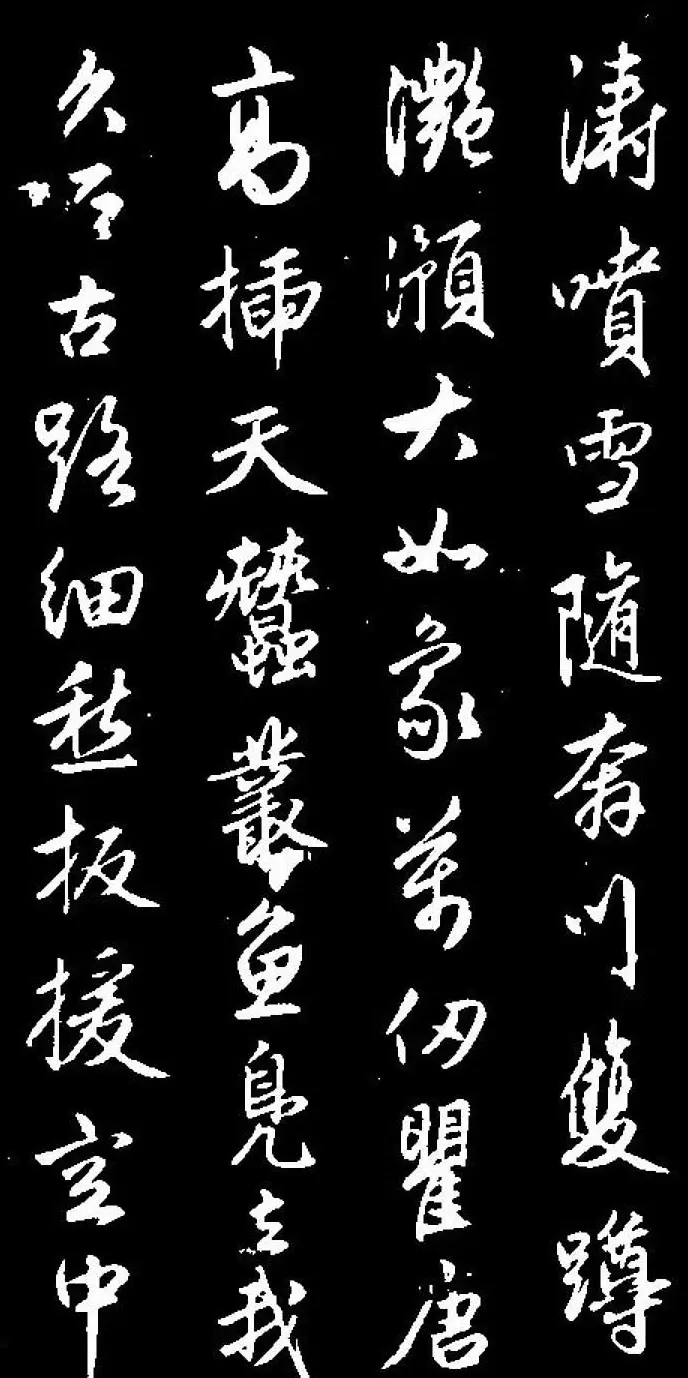 濤噴雪隨奔川雙蹲
灔澦大如象萬仞瞿唐
高插天蠶叢魚鳧去我
久古路細愁扳援空中